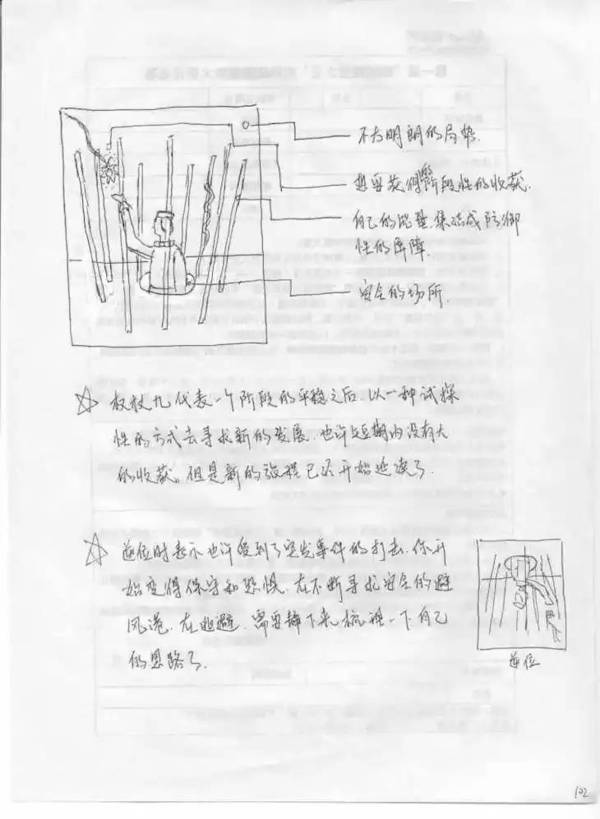 不太明朗的局势.
想要获得阶段性的收获.
自己的能量.集结成防御
性的屏障.
安全的场所.
☆ 权杖九代表一个阶段的平稳之后.以一种试探
性的方式去寻求新的发展.也许短期内没有大
的收获。但是新的旅程已经开始延续了.
☆ 逆位时表示也许受到了突发事件的打击.你开
始变得保守和恐惧.在不断寻找安全的避
风港.在逃避.需要静下来梳理一下自己
的思路了.
逆位
102